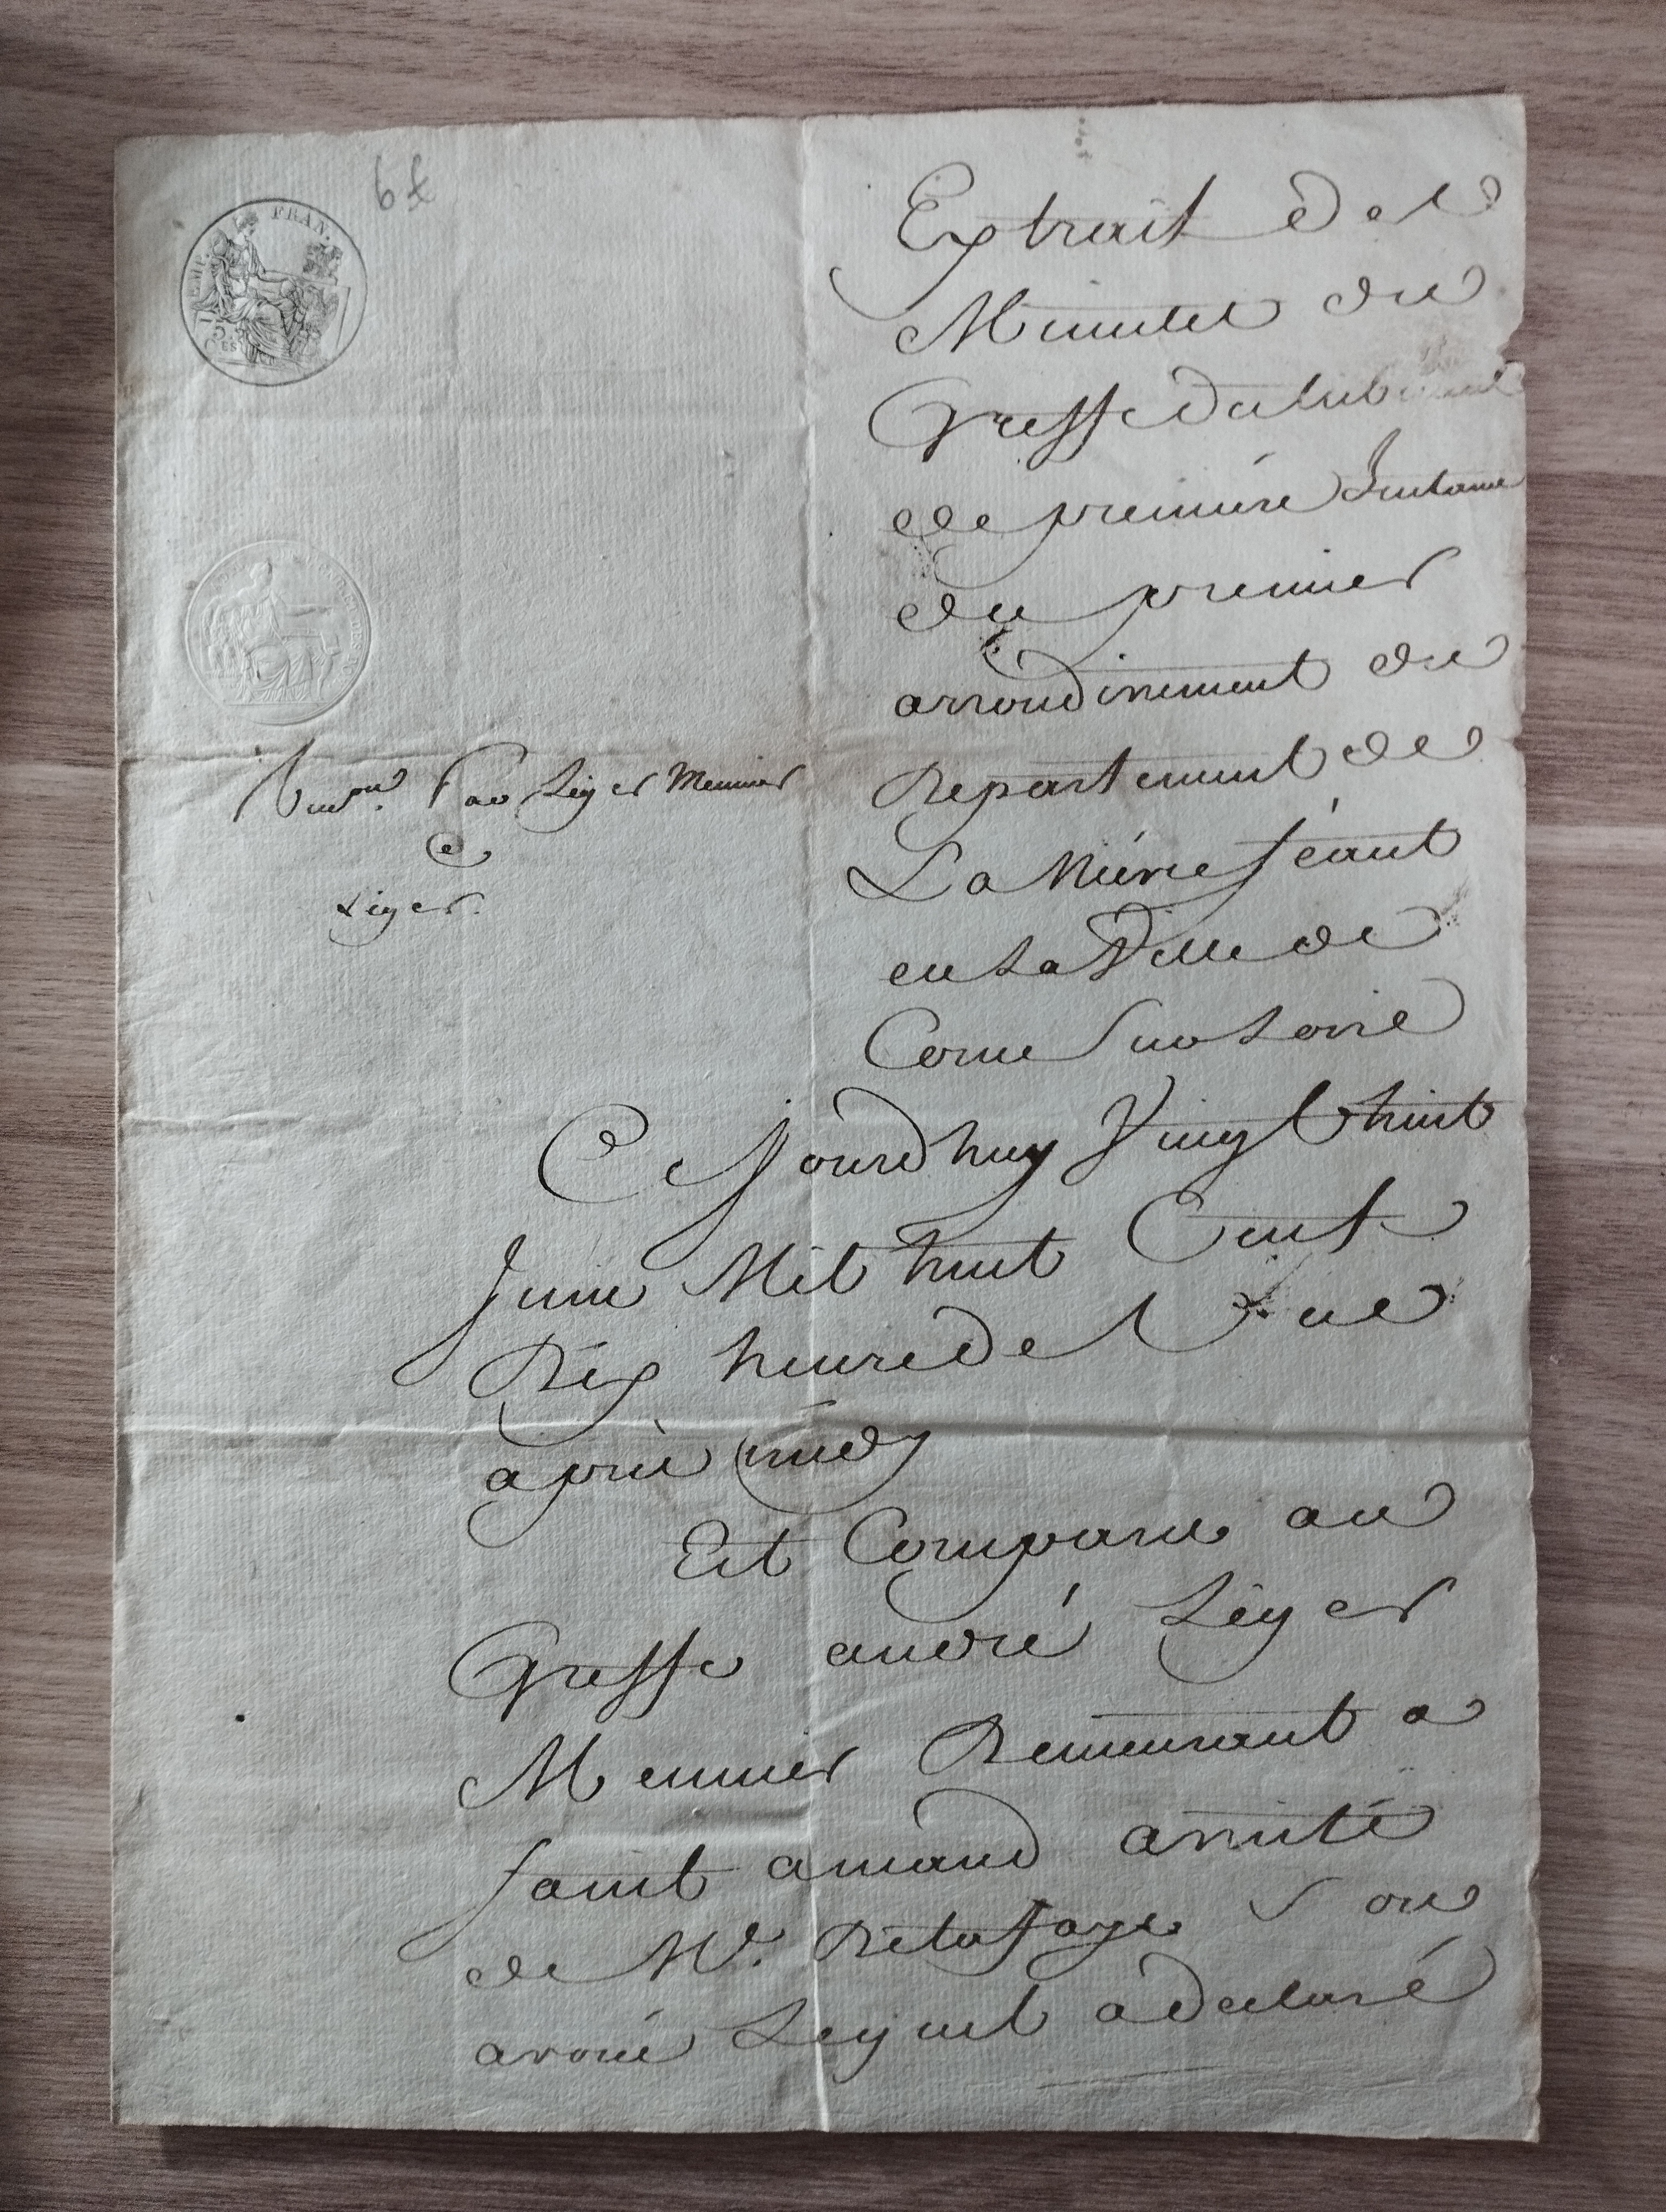 6 £
EMP. FRAN.
75
CES
Extrait des
Minutes du
Greffe du tribunal
de premiere Instance
du premier
arrondissement du
Departement de
La Niévre séant
en La Ville de
Cosne Sur Loire
Par Léger Meunier
C
Léger.
Ce Jourdhuy Vingt huit
Juin Mil huit Cent
Dix heure de
après midy
Est Comparu au
Greffe andré Léger
Meunier Demeurant a
saint amand assisté
de Me. Delafaye son
avoué Lequel a declaré